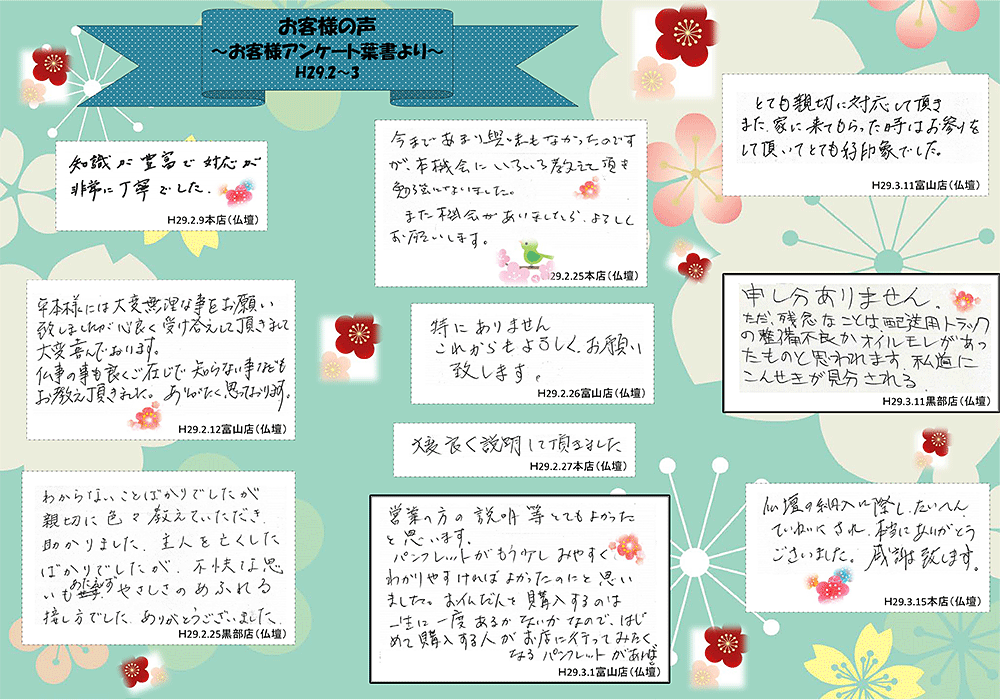 お客様の声
～お客様アンケート葉書より～
H29.2～3
知識が豊富で対応が
非常に丁寧でした.
H29.2.9本店(仏壇)
平本様には大変無理な事をお願い
致しましたが心良く受け答えして頂きまして
大変喜んでおります。
仏事の事も良くご在じで知らない事なども
お教え頂きました。ありがたく思っております。
H29.2.12富山店(仏壇)
わからないことばかりでしたが
親切に色々教えていただき.
助かりました. 主人を亡くした
ばかりでしたが、不快な思
いも あたえず やさしさのあふれる
接し方でした. ありがとうございました.
H29.2.25黒部店(仏壇)
今まであまり興味もなかったのです
が、本機会にいろいろ教えて頂き
勉強になりました。
また機会がありましたら、よろしく
お願いします。
29.2.25本店(仏壇)
特にありません
これからもよろしく、お願い
致します。
H29.2.26富山店(仏壇)
良く説明して頂きました
H29.2.27本店(仏壇)
営業の方の説明等とてもよかった
と思います。
パンフレットがもう少しみやすく
わかりやすければよかったのにと思い
ました。お仏だんを購入するのは
一生に一度あるかないかなので、はじ
めて購入する人がお店に行ってみたく
なるパンフレットがあれば
H29.3.1富山店(仏壇)
とても親切に対応して頂き
また、家に来てもらった時はお参りを
して頂いてとても好印象でした。
H29.3.11富山店(仏壇)
申し分ありません.
ただ、残念なことは、配送用トラック
の整備不良かオイルモレがあっ
たものと思われます. 私道に
こんせきが見分される.
H29.3.11黒部店(仏壇)
仏壇の納入に際し、たいへん
ていねいにされ、本当にありがとう
ございました。感謝致します。
H29.3.15本店(仏壇)